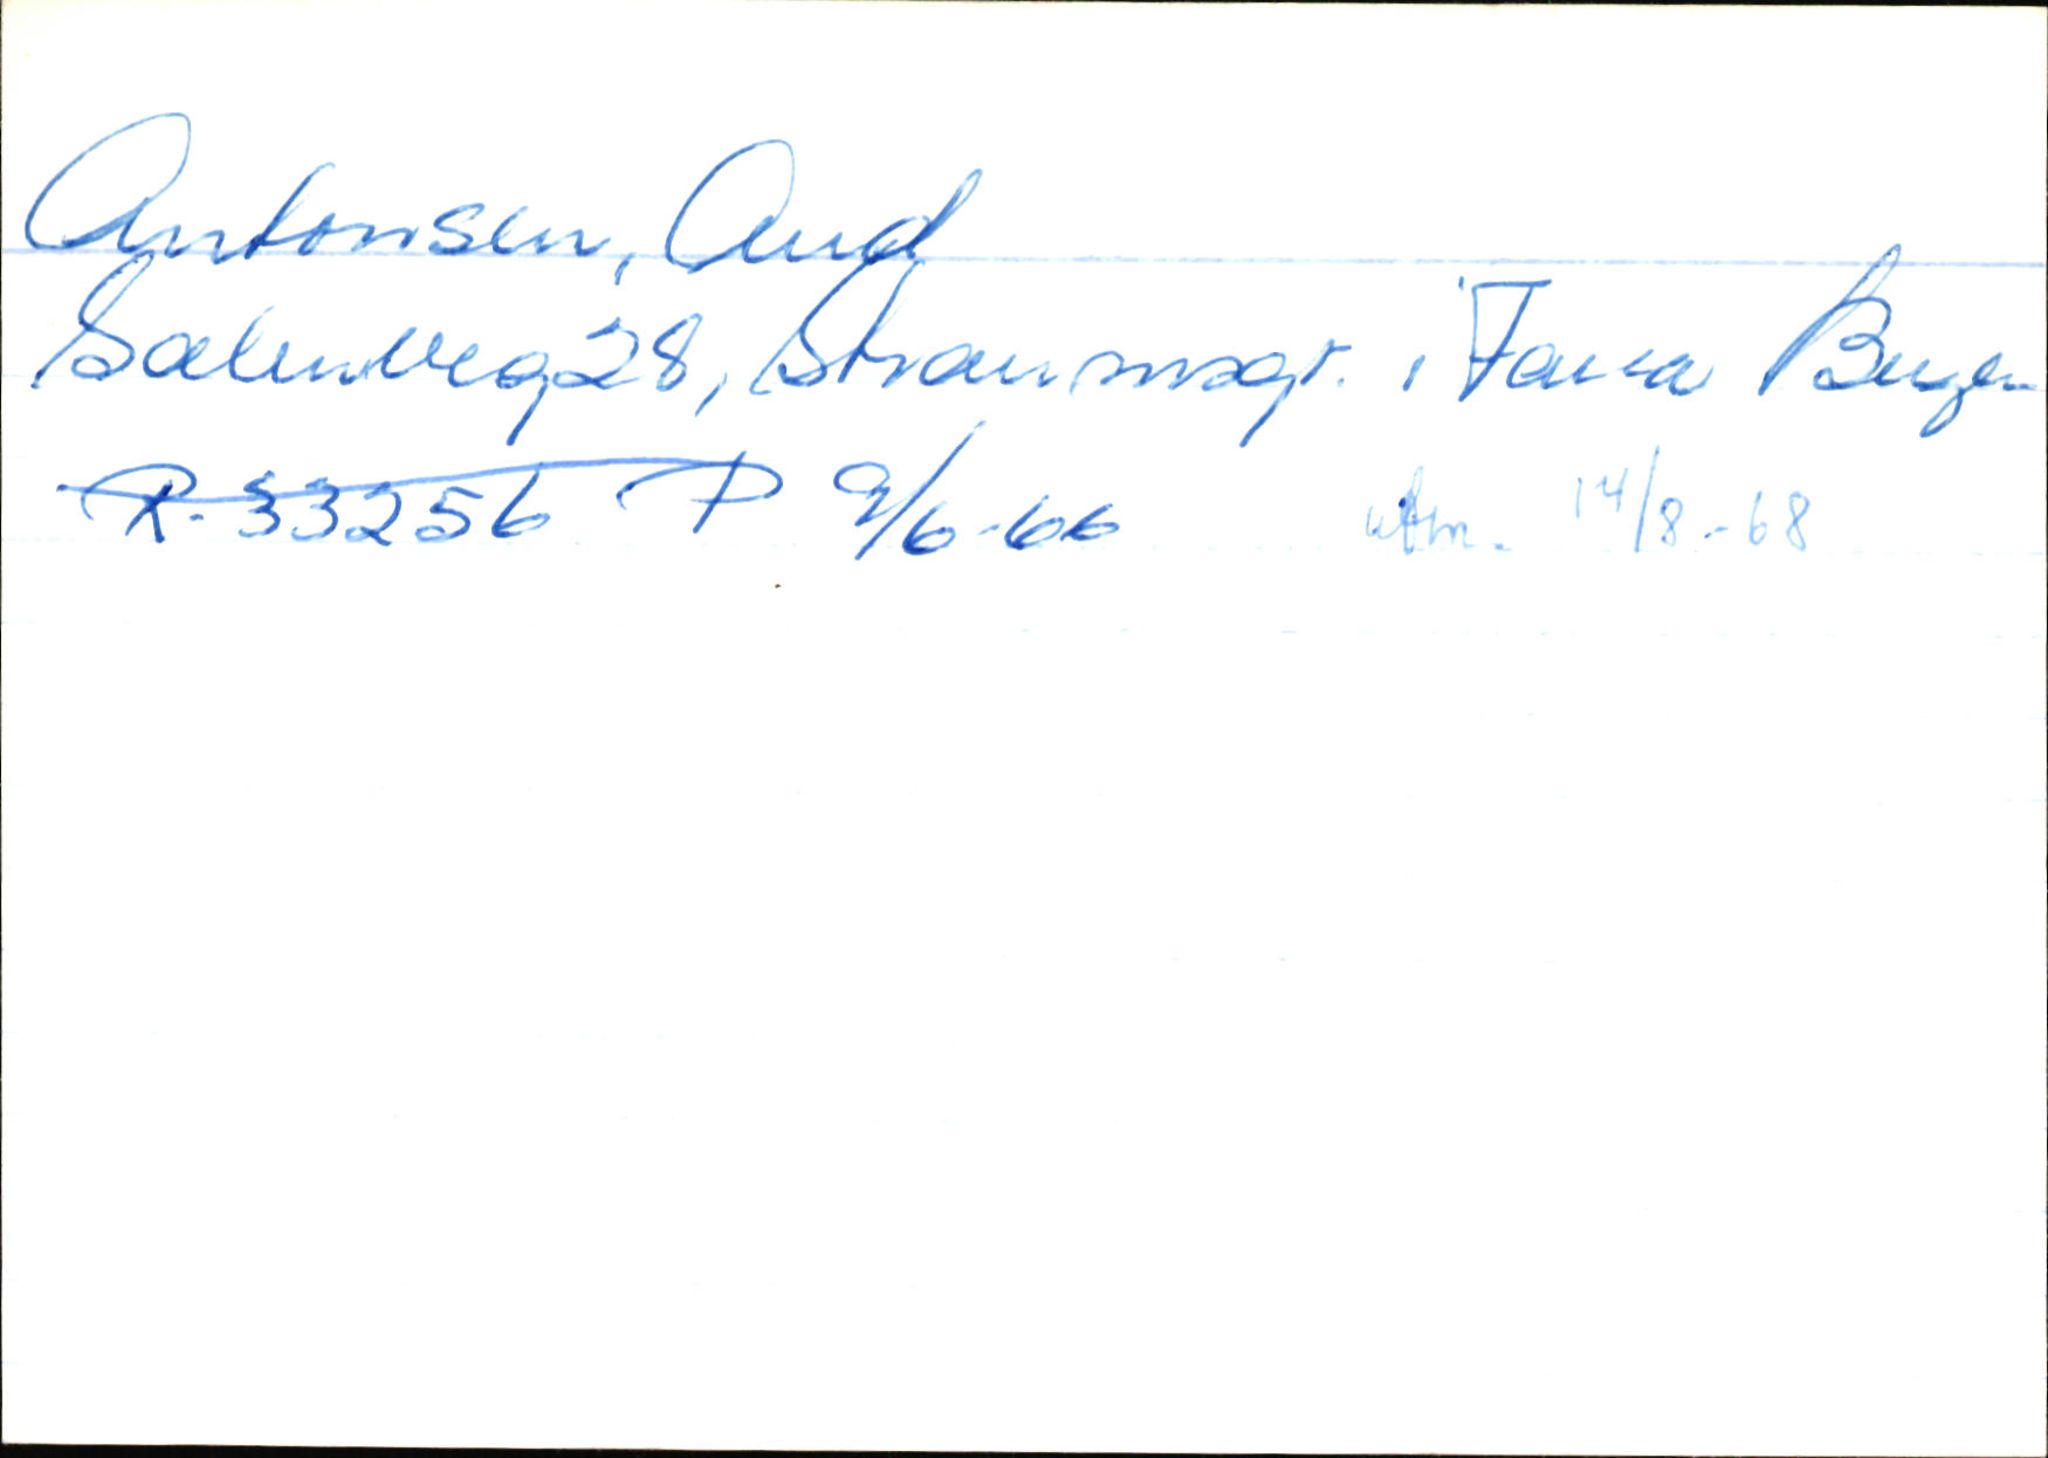 Antonsen, Aud
Sælenveg 28, Straumsgr., Fana Bergen
R-33256 P 9/6-66 utm. 14/8-68